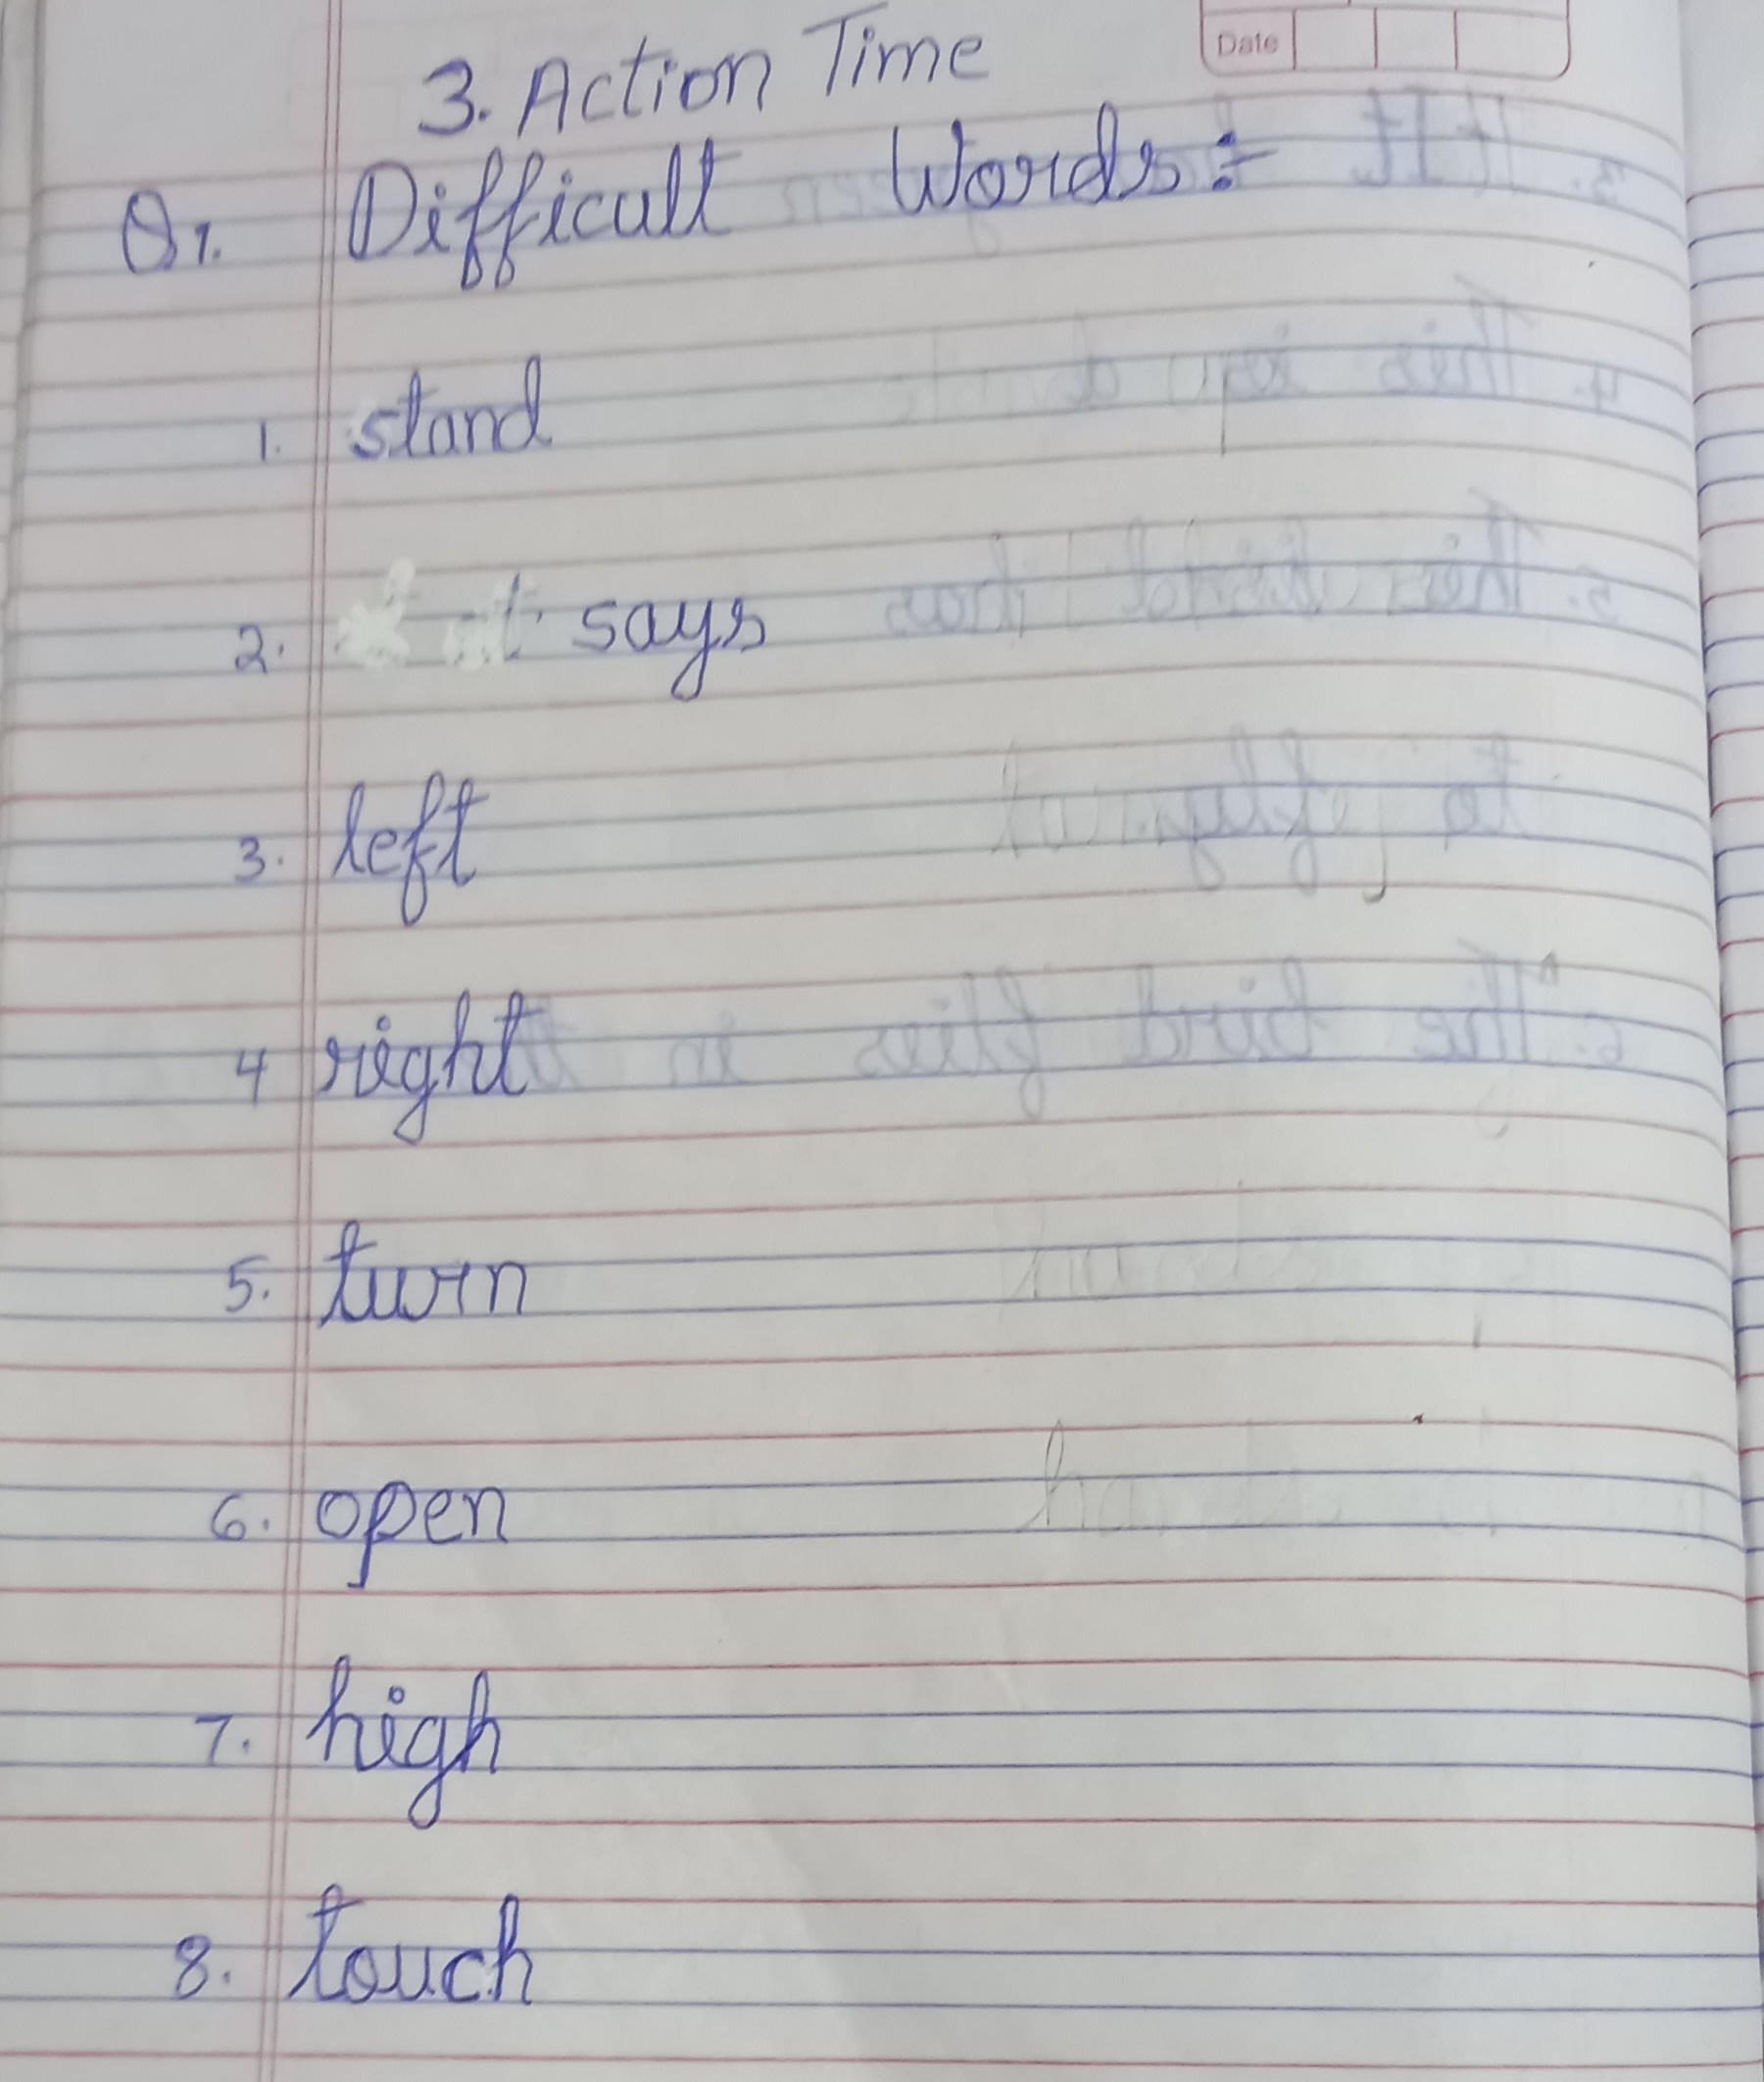 Date
3. Action Time
Q1. Difficult Words:-
1. stand
2. says
3. left
4 right
5. turn
6. open
7. high
8. touch